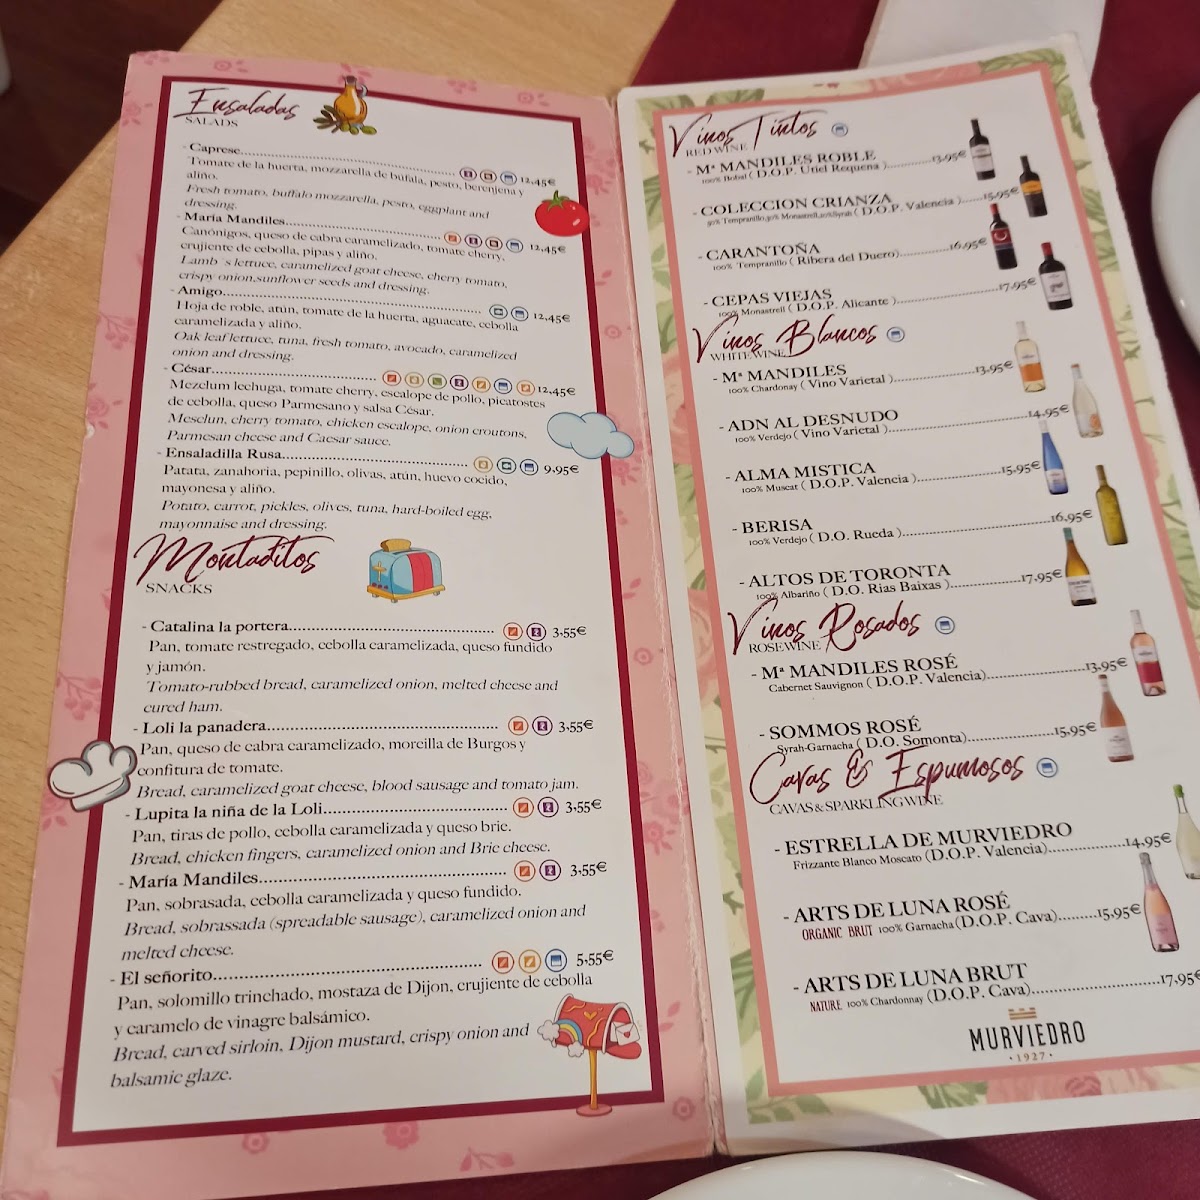 Ensaladas
SALADS
- Caprese........................................ 12,45€
Tomate de la huerta, mozzarella de bufala, pesto, berenjena y
aliño.
Fresh tomato, buffalo mozzarella, pesto, eggplant and
dressing.
- María Mandiles........................................ 12,45€
Canónigos, queso de cabra caramelizado, tomate cherry,
crujiente de cebolla, pipas y aliño.
Lamb´s lettuce, caramelized goat cheese, cherry tomato,
crispy onion,sunflower seeds and dressing.
- Amigo........................................ 12,45€
Hoja de roble, atún, tomate de la huerta, aguacate, cebolla
caramelizada y aliño.
Oak leaf lettuce, tuna, fresh tomato, avocado, caramelized
onion and dressing.
- César........................................ 12,45€
Mezclum lechuga, tomate cherry, escalope de pollo, picatostes
de cebolla, queso Parmesano y salsa César.
Mesclun, cherry tomato, chicken escalope, onion croutons,
Parmesan cheese and Caesar sauce.
- Ensaladilla Rusa........................................ 9,95€
Patata, zanahoria, pepinillo, olivas, atún, huevo cocido,
mayonesa y aliño.
Potato, carrot, pickles, olives, tuna, hard-boiled egg,
mayonnaise and dressing.
Montaditos
SNACKS
- Catalina la portera........................................ 3,55€
Pan, tomate restregado, cebolla caramelizada, queso fundido
y jamón.
Tomato-rubbed bread, caramelized onion, melted cheese and
cured ham.
- Loli la panadera........................................ 3,55€
Pan, queso de cabra caramelizado, morcilla de Burgos y
confitura de tomate.
Bread, caramelized goat cheese, blood sausage and tomato jam.
- Lupita la niña de la Loli........................................ 3,55€
Pan, tiras de pollo, cebolla caramelizada y queso brie.
Bread, chicken fingers, caramelized onion and Brie cheese.
- María Mandiles........................................ 3,55€
Pan, sobrasada, cebolla caramelizada y queso fundido.
Bread, sobrassada (spreadable sausage), caramelized onion and
melted cheese.
- El señorito........................................ 5,55€
Pan, solomillo trinchado, mostaza de Dijon, crujiente de cebolla
y caramelo de vinagre balsámico.
Bread, carved sirloin, Dijon mustard, crispy onion and
balsamic glaze.
Vinos Tintos
RED WINE
- Mª MANDILES ROBLE
100% Bobal ( D.O.P. Utiel Requena )............13,95€
- COLECCION CRIANZA
50% Tempranillo,30% Monastrell,20%Syrah ( D.O.P. Valencia )......15,95€
- CARANTOÑA
100% Tempranillo ( Ribera del Duero)............16,95€
- CEPAS VIEJAS
100% Monastrell ( D.O.P. Alicante )............17,95€
Vinos Blancos
WHITE WINE
- Mª MANDILES
100% Chardonay ( Vino Varietal )............13,95€
- ADN AL DESNUDO
100% Verdejo ( Vino Varietal )............14,95€
- ALMA MISTICA
100% Muscat ( D.O.P. Valencia )............15,95€
- BERISA
100% Verdejo ( D.O. Rueda )............16,95€
- ALTOS DE TORONTA
100% Albariño ( D.O. Rias Baixas )............17,95€
Vinos Rosados
ROSE WINE
- Mª MANDILES ROSÉ
Cabernet Sauvignon ( D.O.P. Valencia)............13,95€
- SOMMOS ROSÉ
Syrah-Garnacha ( D.O. Somonta)............15,95€
Cavas & Espumosos
CAVAS & SPARKLING WINE
- ESTRELLA DE MURVIEDRO
Frizzante Blanco Moscato (D.O.P. Valencia)............14,95€
- ARTS DE LUNA ROSÉ
ORGANIC BRUT 100% Garnacha (D.O.P. Cava).........15,95€
- ARTS DE LUNA BRUT
NATURE 100% Chardonnay (D.O.P. Cava)............17,95€
MURVIEDRO
· 1927 ·